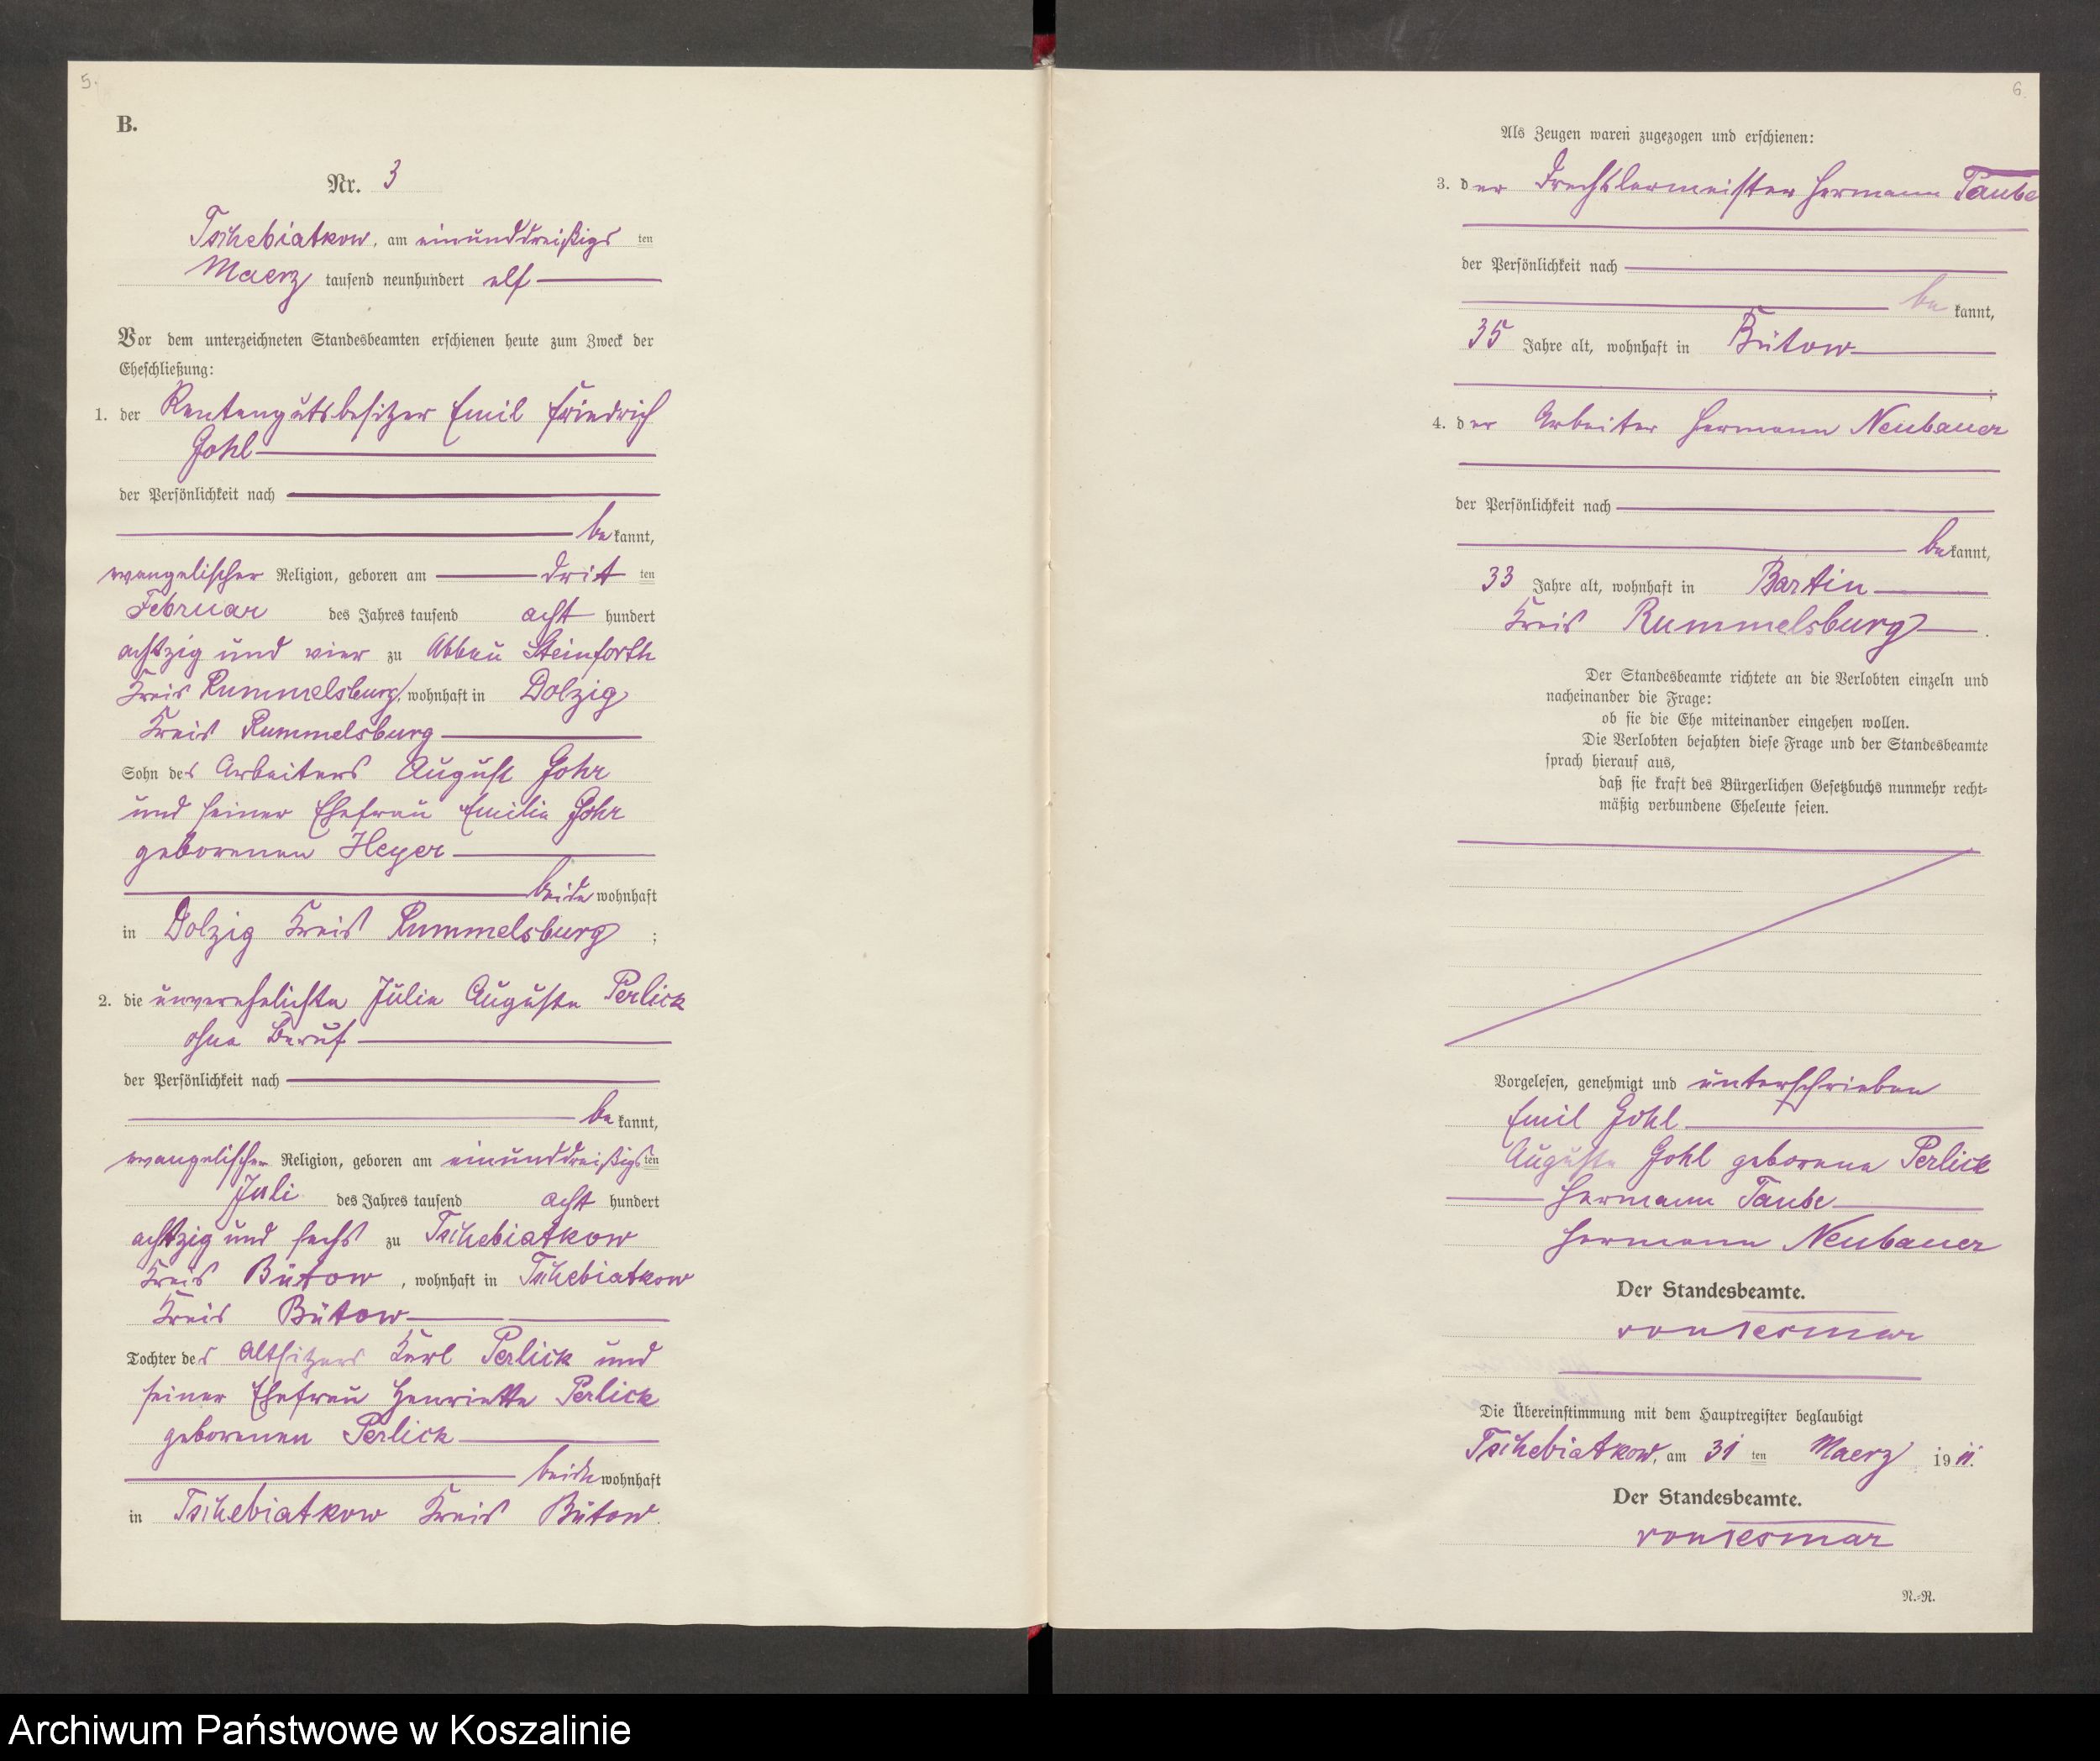 5.
B.
Nr. 3
Tschebiatkow, am einunddreißigs ten
Maerz tausend neunhundert elf
Vor dem unterzeichneten Standesbeamten erschienen heute zum Zweck der
Eheschließung:
1. der Rentengutsbesitzer Emil Friedrich
Gohl
der Persönlichkeit nach
be kannt,
evangelischer Religion, geboren am drit ten
Februar des Jahres tausend acht hundert
achtzig und vier zu Abbau Steinforth
Kreis Rummelsburg, wohnhaft in Dolzig
Kreis Rummelsburg
Sohn des Arbeiters August Gohr
und seiner Ehefrau Emilie Gohr
geborenen Heyer
beide wohnhaft
in Dolzig Kreis Rummelsburg ;
2. die unverehelichte Julie Auguste Perlick
ohne Beruf
der Persönlichkeit nach
be kannt,
evangelischer Religion, geboren am einunddreißigs ten
Juli des Jahres tausend acht hundert
achtzig und sechs zu Tschebiatkow
Kreis Bütow, wohnhaft in Tschebiatkow
Kreis Bütow
Tochter des Altsitzers Karl Perlick und
seiner Ehefrau Henriette Perlick
geborenen Perlick
beide wohnhaft
in Tschebiatkow Kreis Bütow.
6.
Als Zeugen waren zugezogen und erschienen:
3. der Drechslermeister Hermann Taube
der Persönlichkeit nach
be kannt,
35 Jahre alt, wohnhaft in Bütow
;
4. der Arbeiter Hermann Neubauer
der Persönlichkeit nach
be kannt,
33 Jahre alt, wohnhaft in Bartin
Kreis Rummelsburg .
Der Standesbeamte richtete an die Verlobten einzeln und
nacheinander die Frage:
ob sie die Ehe miteinander eingehen wollen.
Die Verlobten bejahten diese Frage und der Standesbeamte
sprach hierauf aus,
daß sie kraft des Bürgerlichen Gesetzbuchs nunmehr recht-
mäßig verbundene Eheleute seien.
Vorgelesen, genehmigt und unterschrieben
Emil Gohl
Auguste Gohl geborene Perlick
Hermann Taube
Hermann Neubauer
Der Standesbeamte.
von Tesmar
Die Übereinstimmung mit dem Hauptregister beglaubigt
Tschebiatkow, am 31 ten Maerz 19 11.
Der Standesbeamte.
von Tesmar
N.-R.
Archiwum Państwowe w Koszalinie